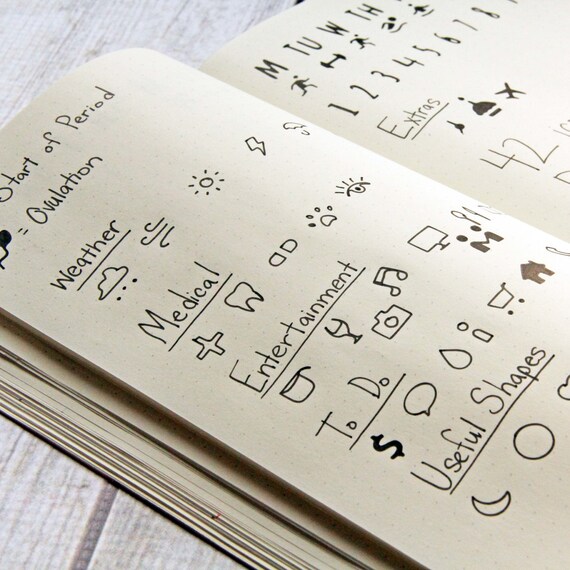 Start of Period
= Ovulation
Weather
Medical
Entertainment
To Do
$
Useful Shapes
M TU W TH
1 2 3 4 5 6 7 8
Extras
42